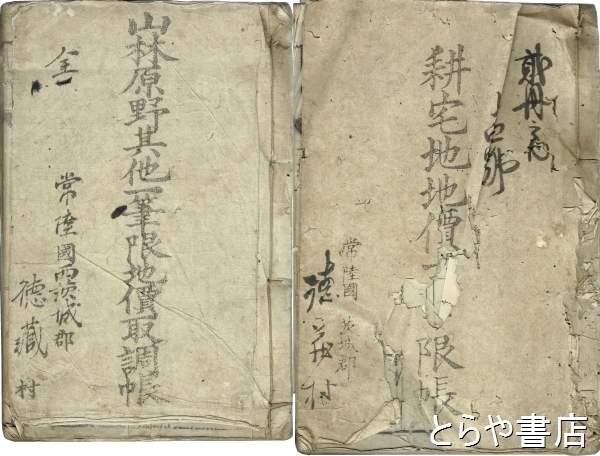 山林原野其他一筆限地價取調帳
全
常陸國西茨城郡
徳蔵村
耕宅地地價 限帳
常陸國 茨城郡
徳蔵村
とらや書店